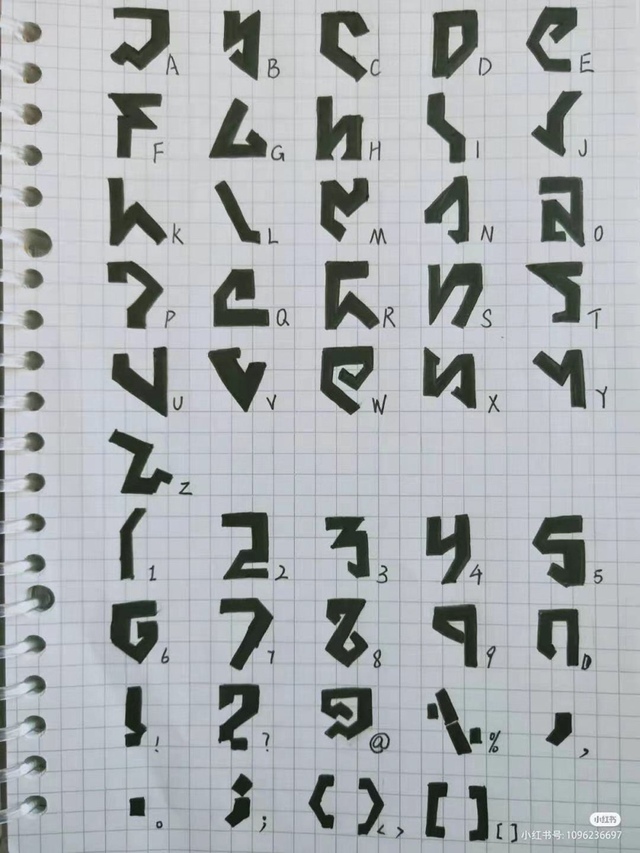 A B C D E
F G H I J
K L M N O
P Q R S T
U V W X Y
Z
1 2 3 4 5
6 7 8 9 0
! ? @ % ,
。 ; < > [ ]
小红书
小红书号: 1096236697